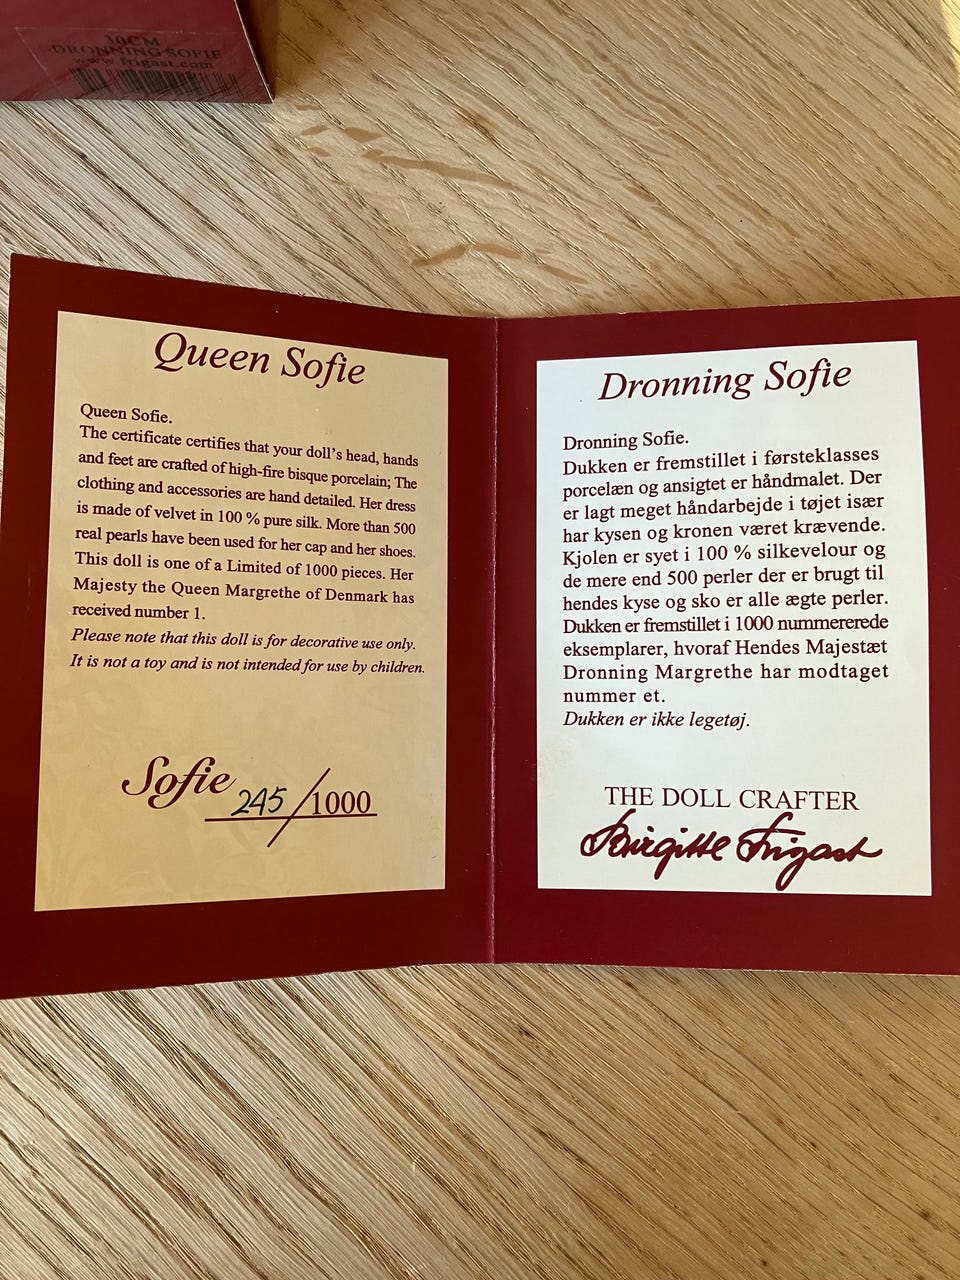 30CM
DRONNING SOFIE
www.frigast.com
Queen Sofie
Queen Sofie.
The certificate certifies that your doll's head, hands
and feet are crafted of high-fire bisque porcelain; The
clothing and accessories are hand detailed. Her dress
is made of velvet in 100 % pure silk. More than 500
real pearls have been used for her cap and her shoes.
This doll is one of a Limited of 1000 pieces. Her
Majesty the Queen Margrethe of Denmark has
received number 1.
Please note that this doll is for decorative use only.
It is not a toy and is not intended for use by children.
Sofie 245/1000
Dronning Sofie
Dronning Sofie.
Dukken er fremstillet i førsteklasses
porcelæn og ansigtet er håndmalet. Der
er lagt meget håndarbejde i tøjet især
har kysen og kronen været krævende.
Kjolen er syet i 100 % silkevelour og
de mere end 500 perler der er brugt til
hendes kyse og sko er alle ægte perler.
Dukken er fremstillet i 1000 nummererede
eksemplarer, hvoraf Hendes Majestæt
Dronning Margrethe har modtaget
nummer et.
Dukken er ikke legetøj.
THE DOLL CRAFTER
Birgitte Frigast